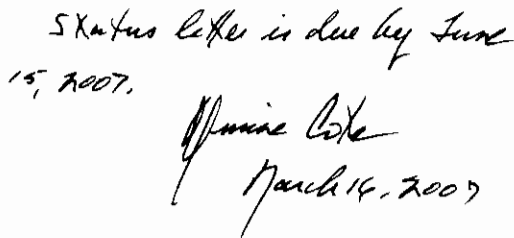 Status letter is due by June
15, 2007.
Cote
March 16, 2007